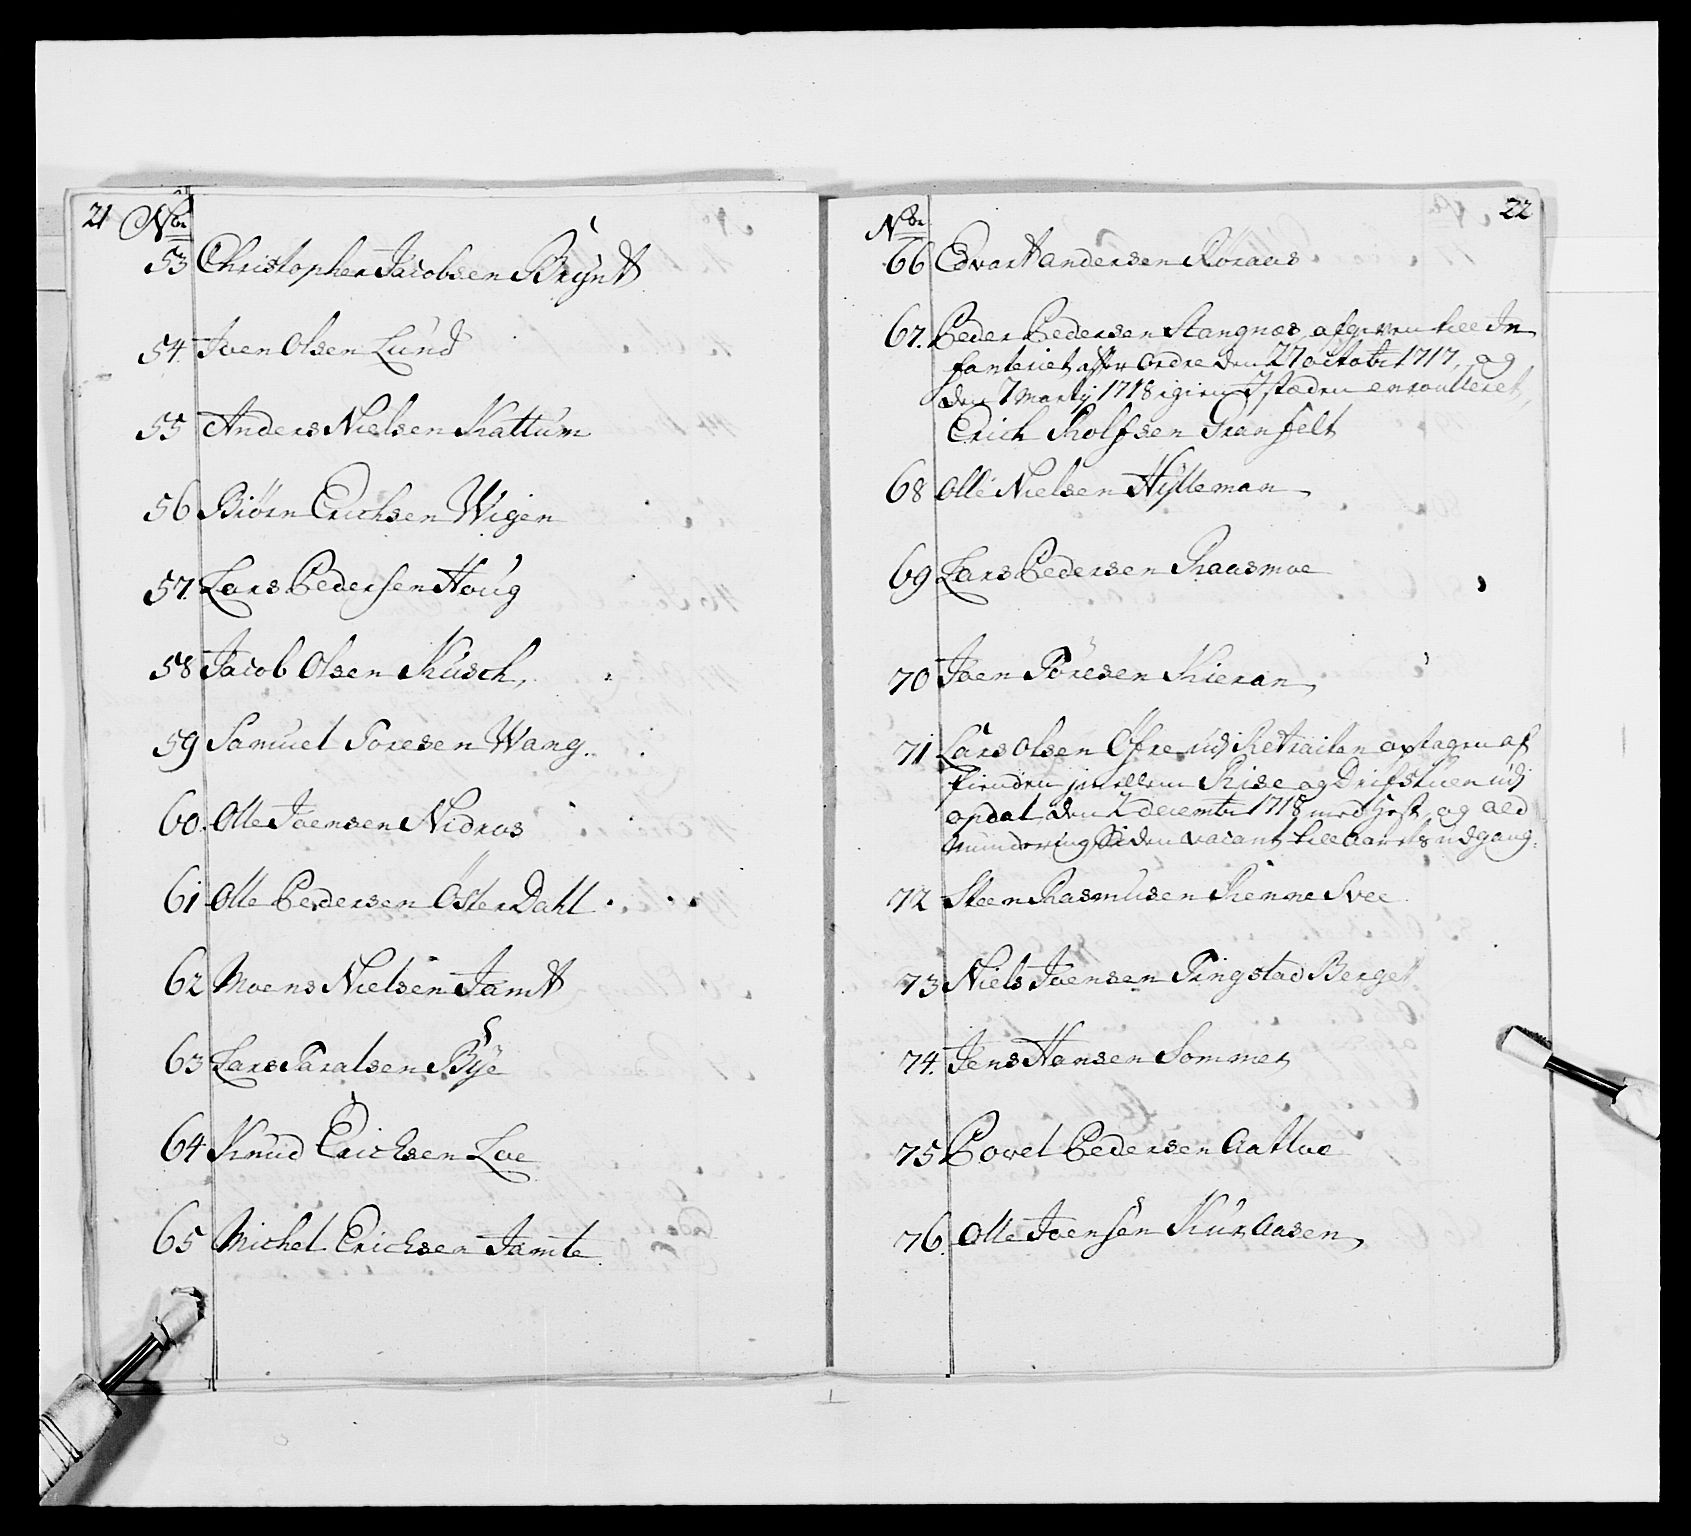 21 No
53 Christopher Jacobsen Brÿnt
54. Joen Olsen Lund
55 Anders Nielsen Kattum
56 Biörn Erichsen Wigen
57. Lars Pedersen Houg
58 Jacob Olsen Kusch,
59 Samuel Toresen Wang.
60. Olle Joensen Nidros
61 Olle Pedersen Öster Dahl
62 Moens Nielsen Jamt
63 Lars Taralsen Bÿe
64 Knud Erichsen Loe
65 Michel Erichsen Jamte
No 22
66 Edvart andersen Röraas
67. Peder Pedersen Stangnes afgiven till In
fanteriet after Ordre den 27 octobr 1717, og
den 7 Martij 1718 igien J stæden enroulleret,
Erich Rolfsen Granfelt
68 Olle Nielsen Hÿlleman
69 Lars Pedersen Raasmoe
70 Joen Töresen Kieran
71 Lars Olsen Öfre, udj Retraiten optagen af
Fienden jmellem Rise og Drifstuen udj
opdal den 2 decembr 1718 med Hest og ald
Mundering Siden vacant till Aarets udgang.
72 Steen Rasmusen Renne Svee
73 Niels Joensen Ringstad Berget
74. Jens Hansen Sommer
75 Povel Pedersen Aalluo
76. Olle Joensen Kur Aasen